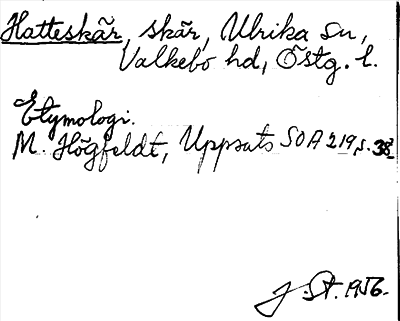 Hatteskär, skär, Ulrika sn,
Valkebo hd, Östg. l.
Etymologi.
M. Högfeldt, Uppsats SOA 219, s. 38
J. St. 1956.